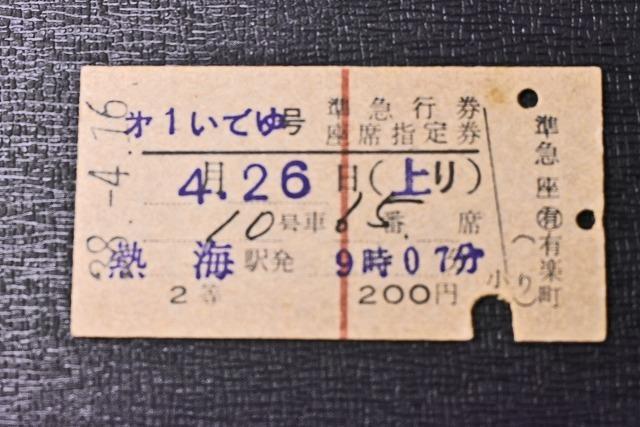 28.-4.16
才1いでゆ号
準急行券
座席指定券
4月26日(上り)
10号車15番席
熱海駅発 9時07分
2等 200円
小
(り)
準急座㊒有楽町